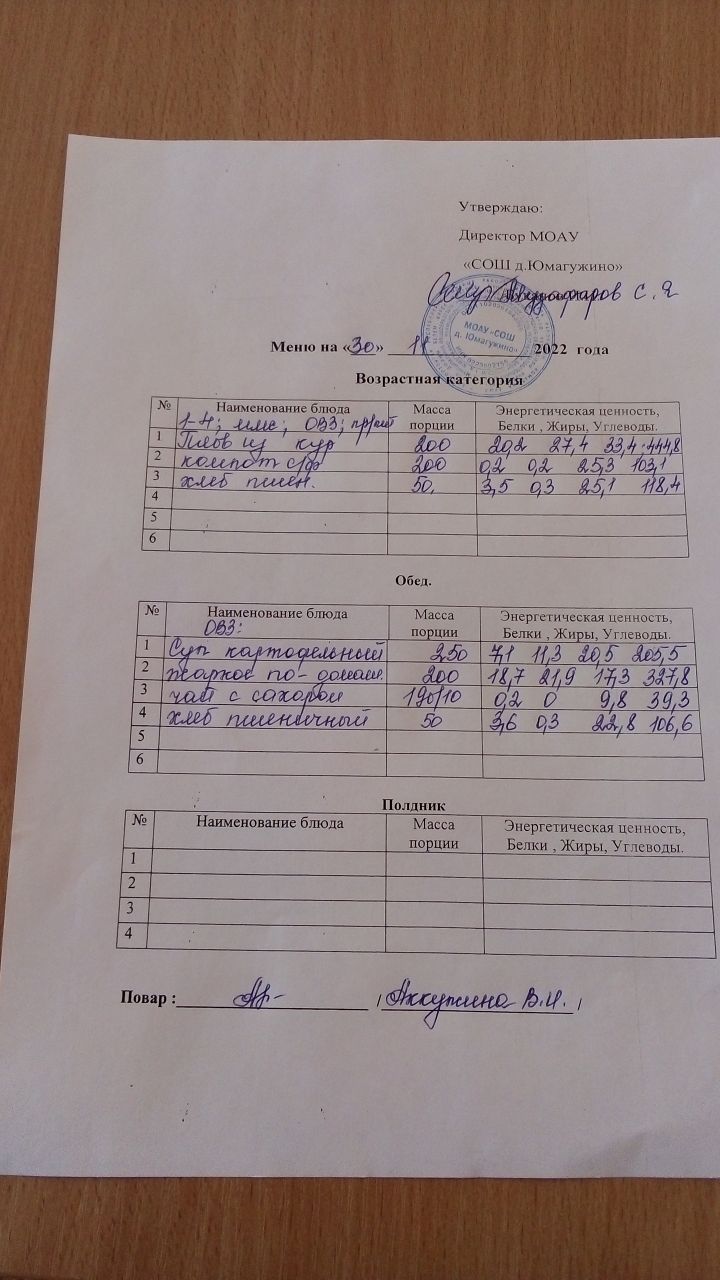 Утверждаю:
Директор МОАУ
«СОШ д.Юмагужино»
С. Я
МОАУ «СОШ
д. Юмагужино»
Меню на «30» 11 2022 года
Возрастная категория
№ Наименование блюда Масса порции Энергетическая ценность, Белки , Жиры, Углеводы.
1-4; ммс; ОВЗ;
1 Плов из кур 200 20,2 27,4 33,4 444,8
2 компот с/ф 200 0,2 0,2 25,3 103,1
3 хлеб пшен. 50. 3,5 0,3 25,1 118,4
4
5
6
Обед.
№ Наименование блюда Масса порции Энергетическая ценность, Белки , Жиры, Углеводы.
ОВЗ:
1 Суп картофельный 250 7,1 11,3 20,5 205,5
2 жаркое по-домаш. 200 18,7 21,9 17,3 327,8
3 чай с сахаром 190/10 0,2 0 9,8 39,3
4 хлеб пшеничный 50 3,6 0,3 22,8 106,6
5
6
Полдник
№ Наименование блюда Масса порции Энергетическая ценность, Белки , Жиры, Углеводы.
1
2
3
4
Повар : / Аккужина В.И. /